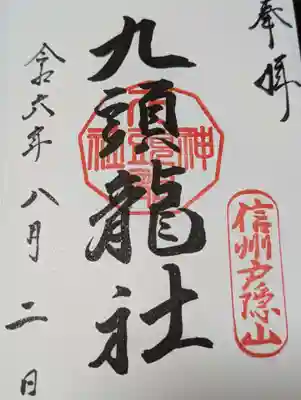 奉拝
信州戸隠山
九頭龍社
令和六年 八月 二日